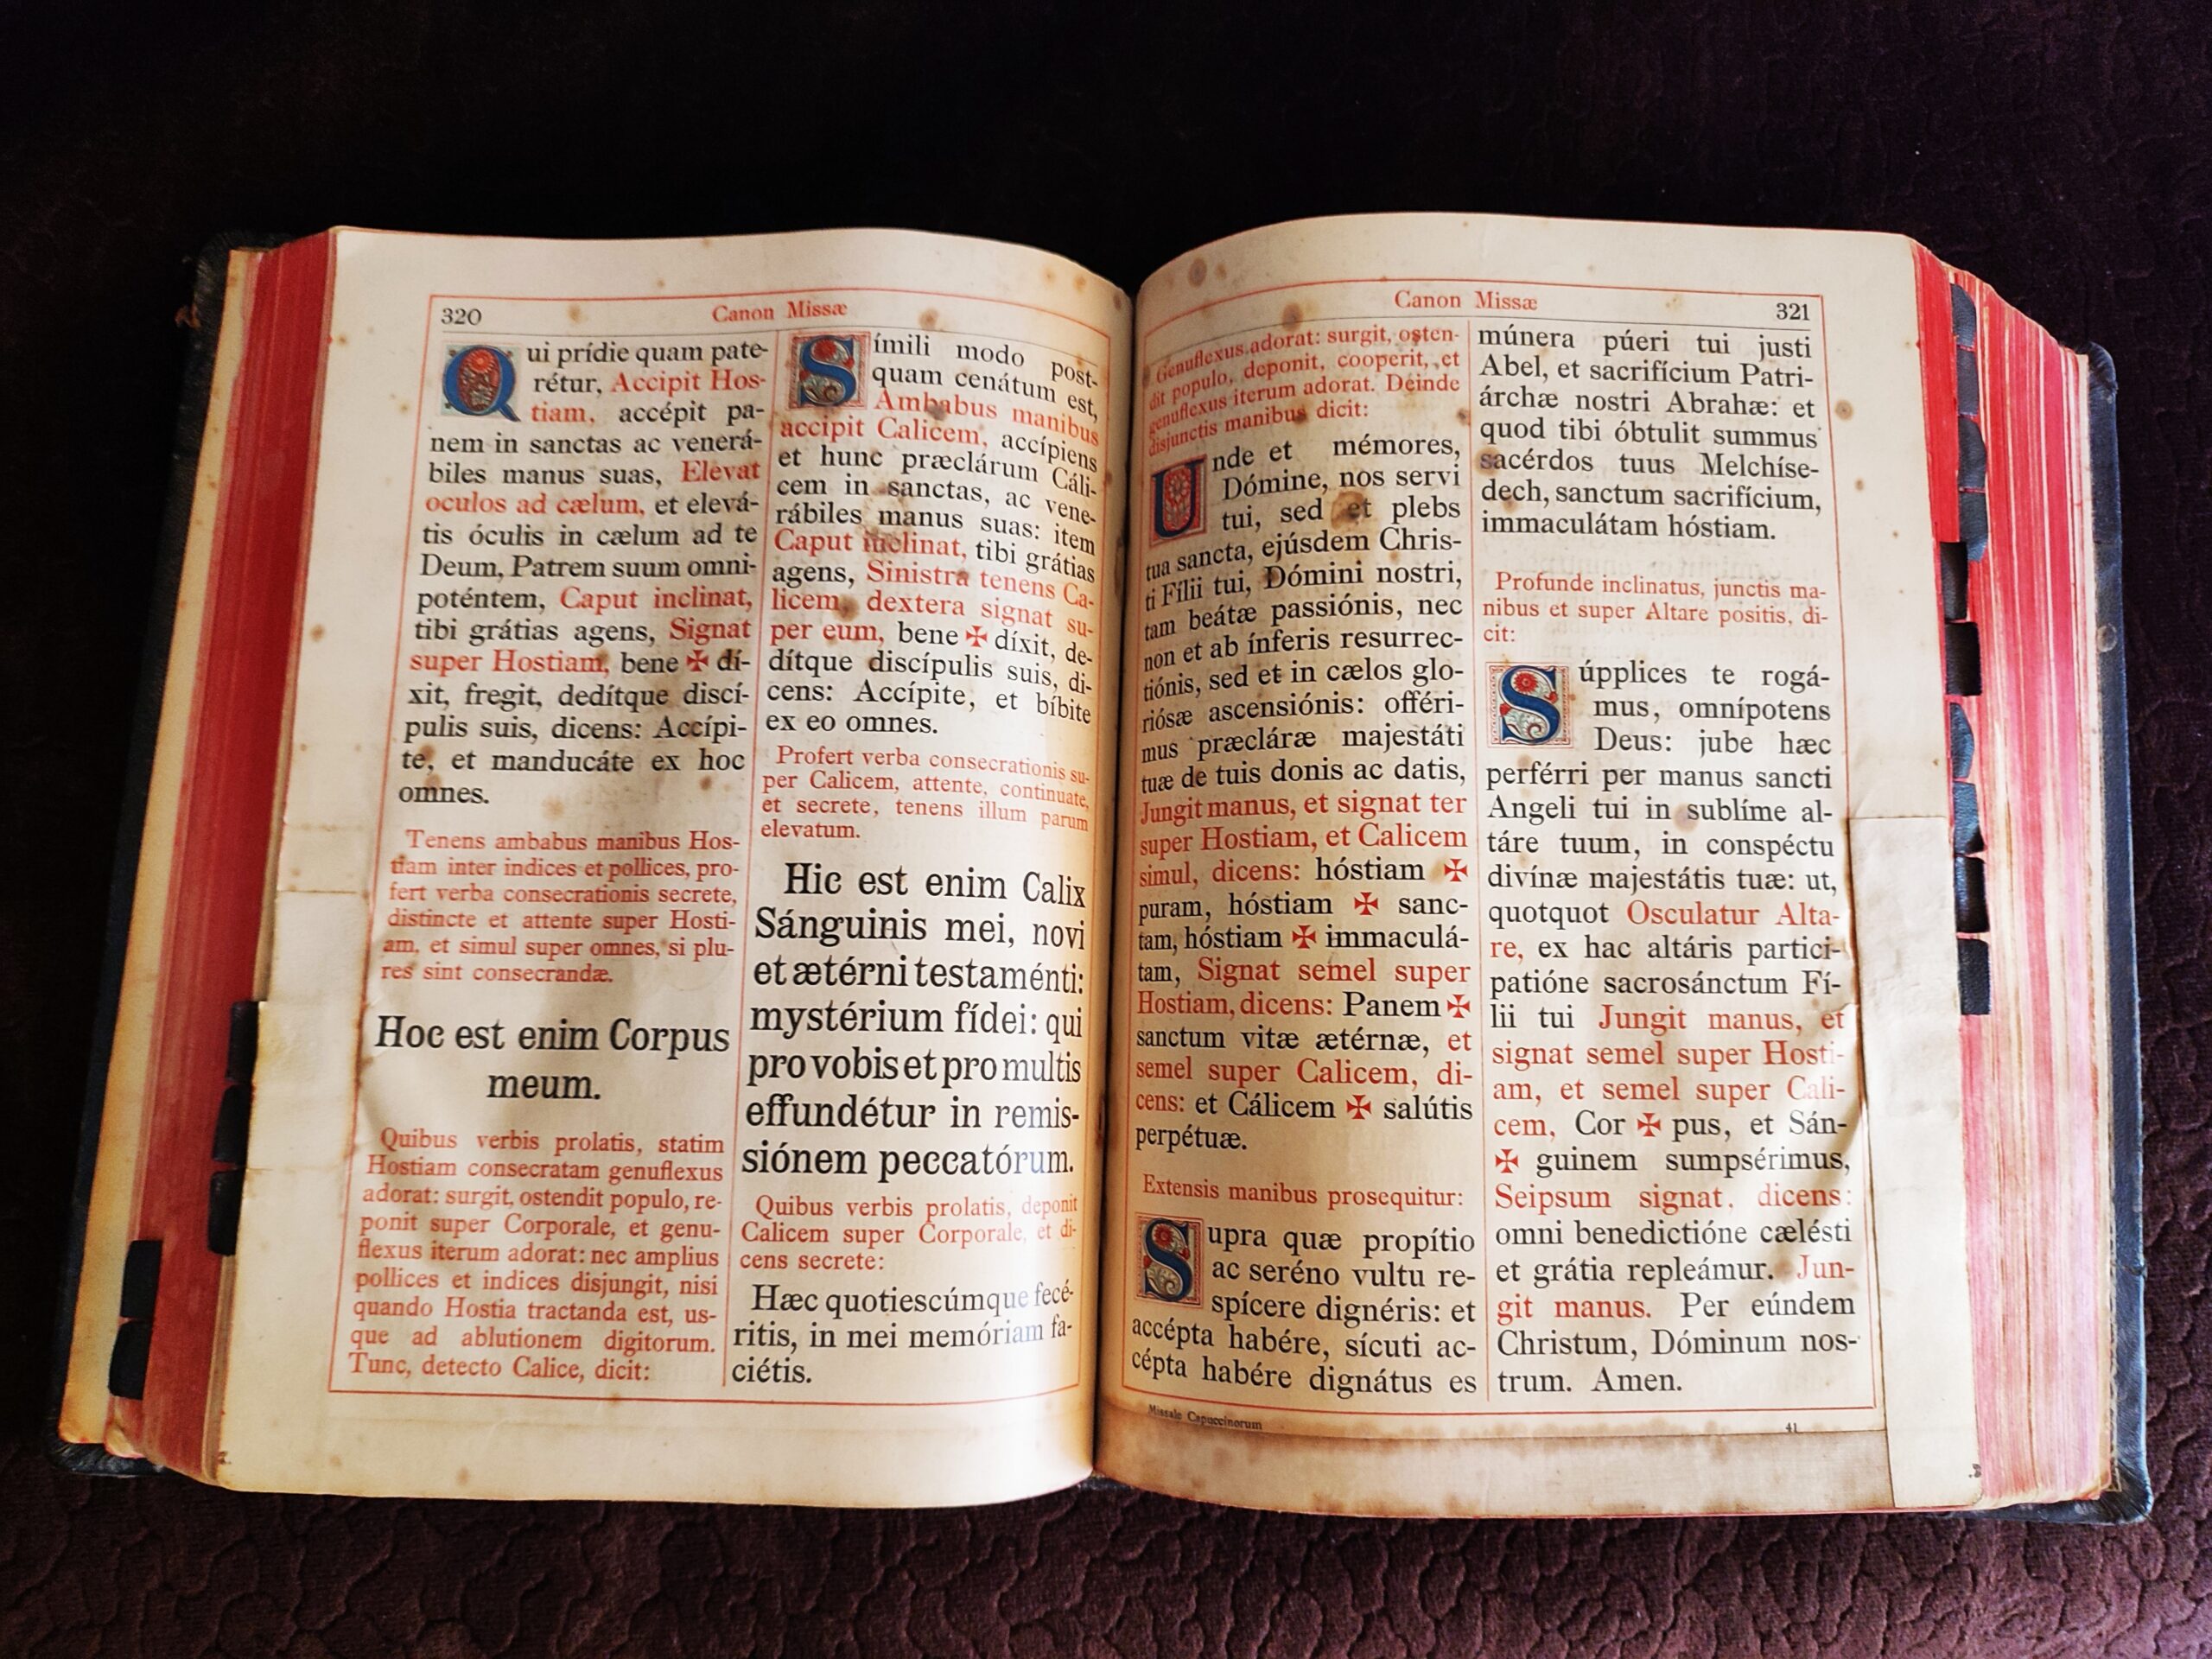 320
Canon Missæ
Qui prídie quam pate-
rétur, Accipit Hos-
tiam, accépit pa-
nem in sanctas ac venerá-
biles manus suas, Elevat
oculos ad cælum, et elevá-
tis óculis in cælum ad te
Deum, Patrem suum omni-
poténtem, Caput inclinat,
tibi grátias agens, Signat
super Hostiam, bene ✠ dí-
xit, fregit, dedítque discí-
pulis suis, dicens: Accípi-
te, et manducáte ex hoc
omnes.
Tenens ambabus manibus Hos-
tiam inter indices et pollices, pro-
fert verba consecrationis secrete,
distincte et attente super Hosti-
am, et simul super omnes, si plu-
res sint consecrandæ.
Hoc est enim Corpus
meum.
Quibus verbis prolatis, statim
Hostiam consecratam genuflexus
adorat: surgit, ostendit populo, re-
ponit super Corporale, et genu-
flexus iterum adorat: nec amplius
pollices et indices disjungit, nisi
quando Hostia tractanda est, us-
que ad ablutionem digitorum.
Tunc, detecto Calice, dicit:
Símili modo post-
quam cenátum est,
Ambabus manibus
accipit Calicem, accípiens
et hunc præclárum Cáli-
cem in sanctas, ac vene-
rábiles manus suas: item
Caput inclinat, tibi grátias
agens, Sinistra tenens Ca-
licem, dextera signat su-
per eum, bene ✠ díxit, de-
dítque discípulis suis, di-
cens: Accípite, et bíbite
ex eo omnes.
Profert verba consecrationis su-
per Calicem, attente, continuate,
et secrete, tenens illum parum
elevatum.
Hic est enim Calix
Sánguinis mei, novi
et ætérni testaménti:
mystérium fídei: qui
pro vobis et pro multis
effundétur in remis-
siónem peccatórum.
Quibus verbis prolatis, deponit
Calicem super Corporale, et di-
cens secrete:
Hæc quotiescúmque fecé-
ritis, in mei memóriam fa-
ciétis.
Canon Missæ
321
Genuflexus adorat: surgit, osten-
dit populo, deponit, cooperit, et
genuflexus iterum adorat. Deinde
disjunctis manibus dicit:
Unde et mémores,
Dómine, nos servi
tui, sed et plebs
tua sancta, ejúsdem Chris-
ti Fílii tui, Dómini nostri,
tam beátæ passiónis, nec
non et ab ínferis resurrec-
tiónis, sed et in cælos glo-
riósæ ascensiónis: offéri-
mus præcláræ majestáti
tuæ de tuis donis ac datis,
Jungit manus, et signat ter
super Hostiam, et Calicem
simul, dicens: hóstiam ✠
puram, hóstiam ✠ sanc-
tam, hóstiam ✠ immaculá-
tam, Signat semel super
Hostiam, dicens: Panem ✠
sanctum vitæ ætérnæ, et
semel super Calicem, di-
cens: et Cálicem ✠ salútis
perpétuæ.
Extensis manibus prosequitur:
Supra quæ propítio
ac seréno vultu re-
spícere dignéris: et
accépta habére, sícuti ac-
cépta habére dignátus es
múnera púeri tui justi
Abel, et sacrifícium Patri-
árchæ nostri Abrahæ: et
quod tibi óbtulit summus
sacérdos tuus Melchíse-
dech, sanctum sacrifícium,
immaculátam hóstiam.
Profunde inclinatus, junctis ma-
nibus et super Altare positis, di-
cit:
Súpplices te rogá-
mus, omnípotens
Deus: jube hæc
perférri per manus sancti
Angeli tui in sublíme al-
táre tuum, in conspéctu
divínæ majestátis tuæ: ut,
quotquot Osculatur Alta-
re, ex hac altáris partici-
patióne sacrosánctum Fí-
lii tui Jungit manus, et
signat semel super Hosti-
am, et semel super Cali-
cem, Cor ✠ pus, et Sán-
✠ guinem sumpsérimus,
Seipsum signat, dicens:
omni benedictióne cælésti
et grátia repleámur. Jun-
git manus. Per eúndem
Christum, Dóminum nos-
trum. Amen.
Missale Capuccinorum
41